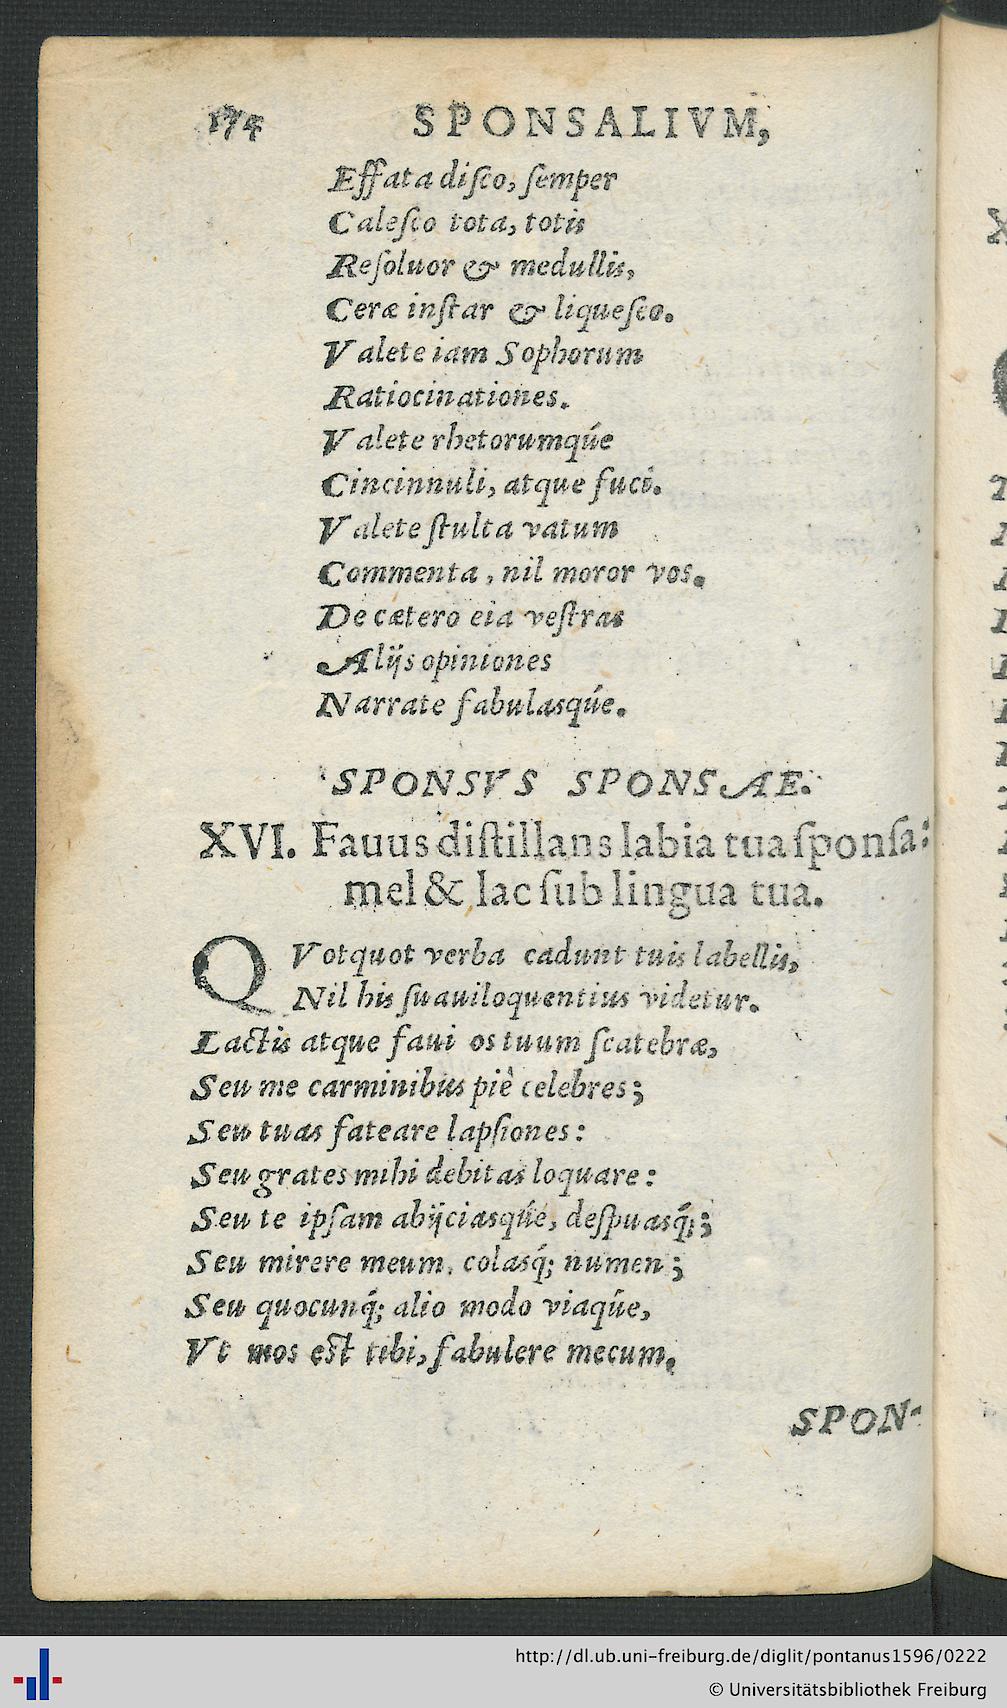 174 SPONSALIVM,
Effata diſco, ſemper
Caleſco tota, totis
Reſoluor & medullis,
Ceræ inſtar & liqueſco.
Valete iam Sophorum
Ratiocinationes.
Valete rhetorumqúe
Cincinnuli, atque fuci.
Valete ſtulta vatum
Commenta, nil moror vos.
De cætero eia veſtras
Alijs opiniones
Narrate fabulasqúe.
SPONSVS SPONSAE.
XVI. Fauus diſtillans labia tua ſponſa:
mel & lac ſub lingua tua.
QVotquot verba cadunt tuis labellis,
Nil his ſuauiloquentius videtur.
Lactis atque faui os tuum ſcatebræ,
Seu me carminibus piè celebres;
Seu tuas fateare lapſiones:
Seu grates mihi debitas loquare:
Seu te ipſam abijciasqúe, deſpuasq́;;
Seu mirere meum, colasq́; numen;
Seu quocunq́; alio modo viaqúe,
Vt mos eſt tibi, fabulere mecum.
SPON-
http://dl.ub.uni-freiburg.de/diglit/pontanus1596/0222
© Universitätsbibliothek Freiburg